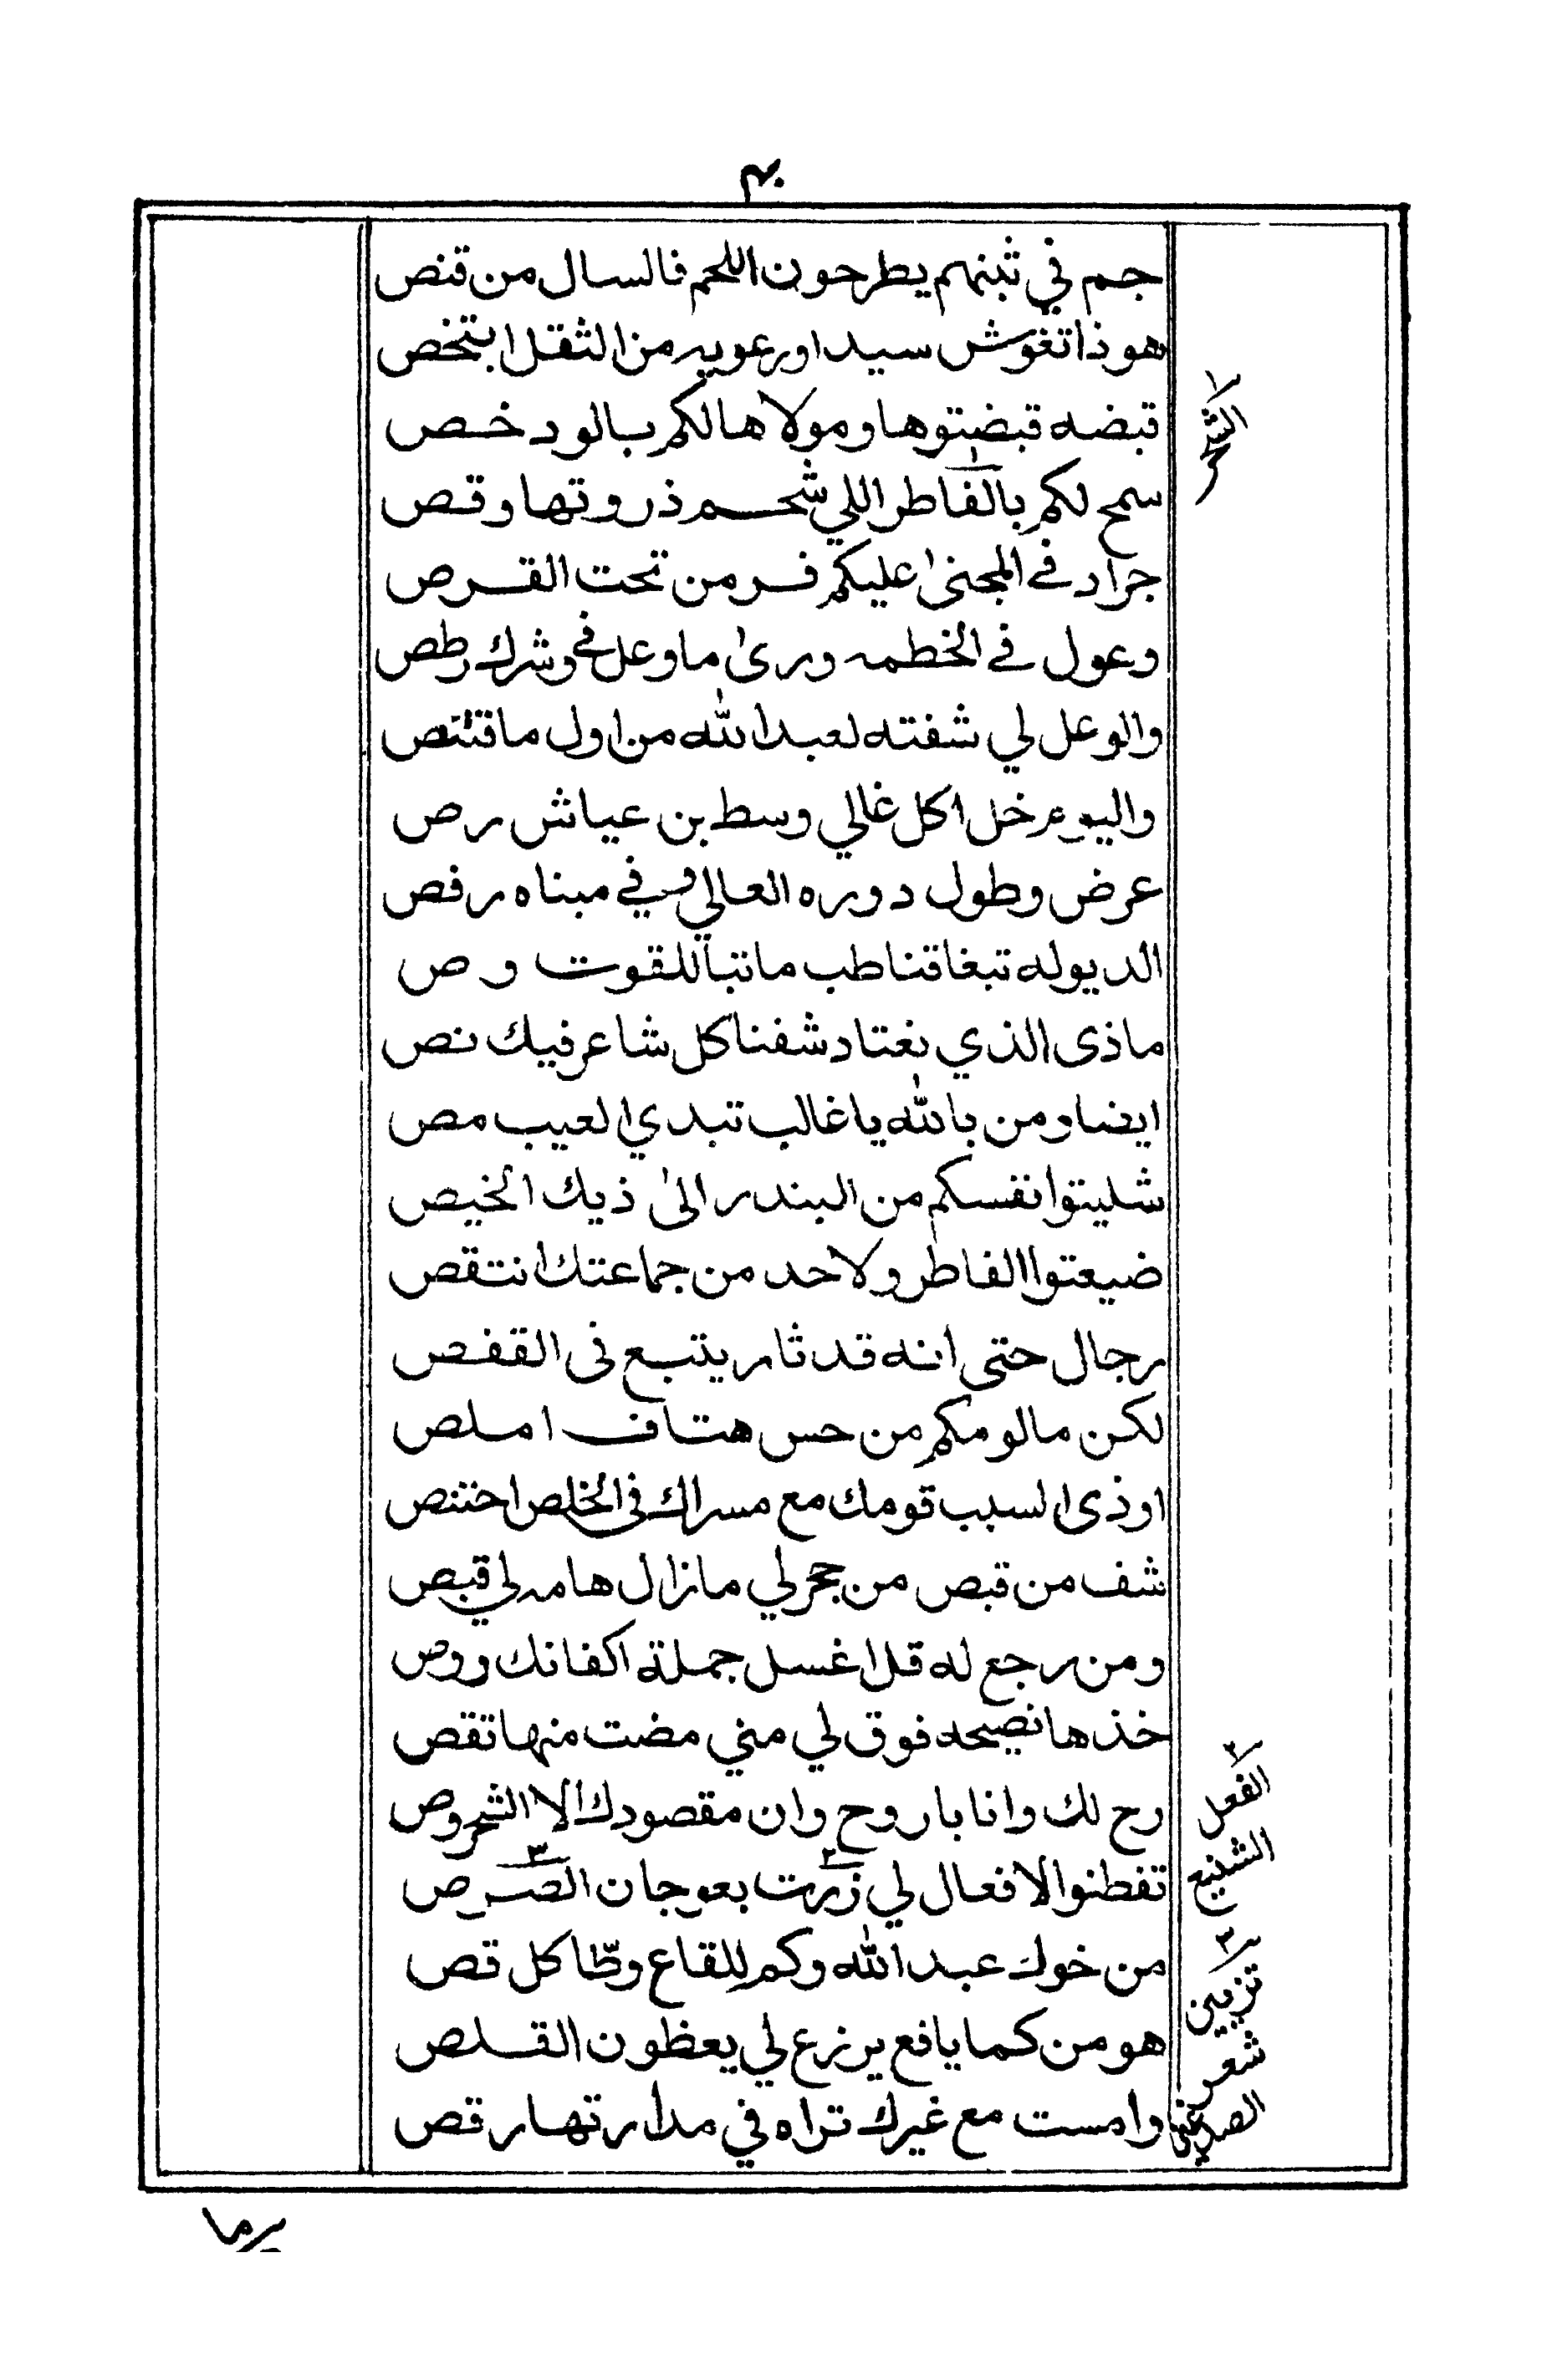 ٤٠
جم في ثبنهم يطرحون اللحم فالسال من قنص
هو ذا تغوش سيد او رعويه من الثقل ابتخص
قبضه قبضتوها ومولاها لكم بالود خص
سمح لكم بالفاطر اللي شحم ذروتها وقص
جراد في المجنى عليكم فر من تحت القرص
وعول في الخطمه ورى ما وعل في وشرك رطص
والوعل لي شفته لعبدالله من اول ما قتنص
واليوم خل اكل غالي وسط بن عياش رص
عرض وطول دوره العالي وفي مبناه رفص
الديوله تبغا قناطب ما تبا للقوت وص
ماذى الذي نعتاد شفنا كل شاعر فيك نص
ايضا ومن بالله يا غالب تبدي العيب مص
شليتوا نفسكم من البندر الى ذيك الخيص
ضيعتوا الفاطر ولا حد من جماعتك انتقص
رجال حتى انه قد ثار يتبع في القفص
لكن مالومكم من حس هتاف املص
اوذى السبب قومك مع مسراك في الخلص اختنص
شف من قبص من جحر لي مازال هامه لي قبص
ومن رجع له قل اغسل جملة اكفانك ووص
خذها نصيحه فوق لي مني مضت منها تقص
رح لك وانا باروح وان مقصودك الا الشحر وص
تفطنوا الافعال لي زرت بعوجان الصرص
من خوك عبدالله وكم للقاع وطّا كل قص
هو من كما يافع يرزع لي يعظون القلص
وامست مع غيرك تراه في مدارتها رقص
١ الشحر
٢ الفعل
الشنيع
٣ تزيين
شعر